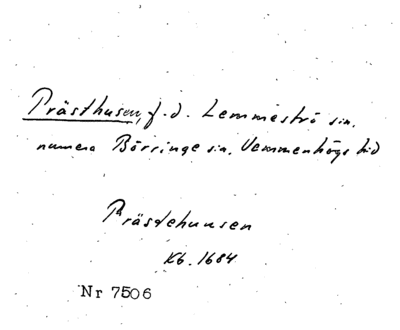 Prästhusen, f.d. Lemmeströ sn.
numera Börringe sn, Vemmenhögs hd
Präsdehuusen
Kb. 1684
Nr 7506